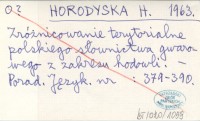 O.2 HORODYSKA H. 1963.
Zróżnicowanie terytorialne
polskiego słownictwa gwaro-
wego z zakresu hodowli. –
Porad. Język. nr : 379-390.